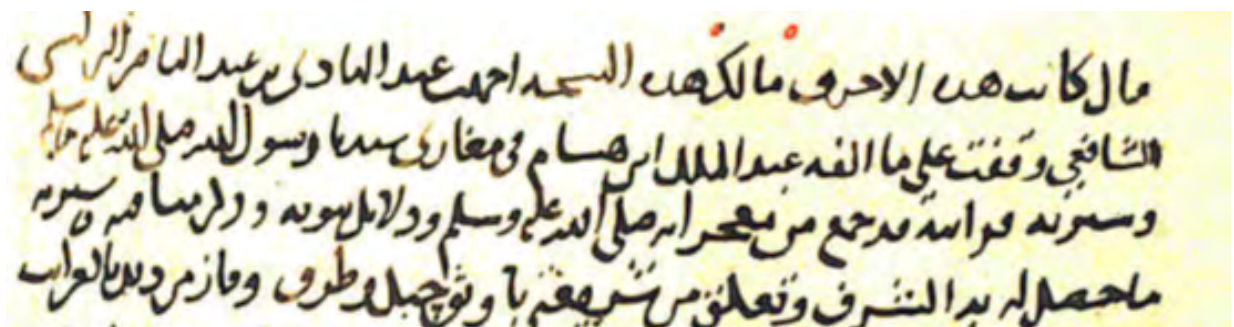 قال كاتب هذه الاحرف مالك هذه النسخة احمد بن عبد الهادي بن عبد
الشافعي وقفت على ما الفه عبد الملك ابن هشام في مغازي سيدنا رسول الله صلى الله عليه وسلم
وسيرته فرايته قد جمع من معجزاته صلى الله عليه وسلم ودلائل نبوته وذكر مناقبه وسيرته
ما حصل له به الشرف وتعلق من شريعته با وثق حبل وطرف وفاز من ذلك بالغرايب